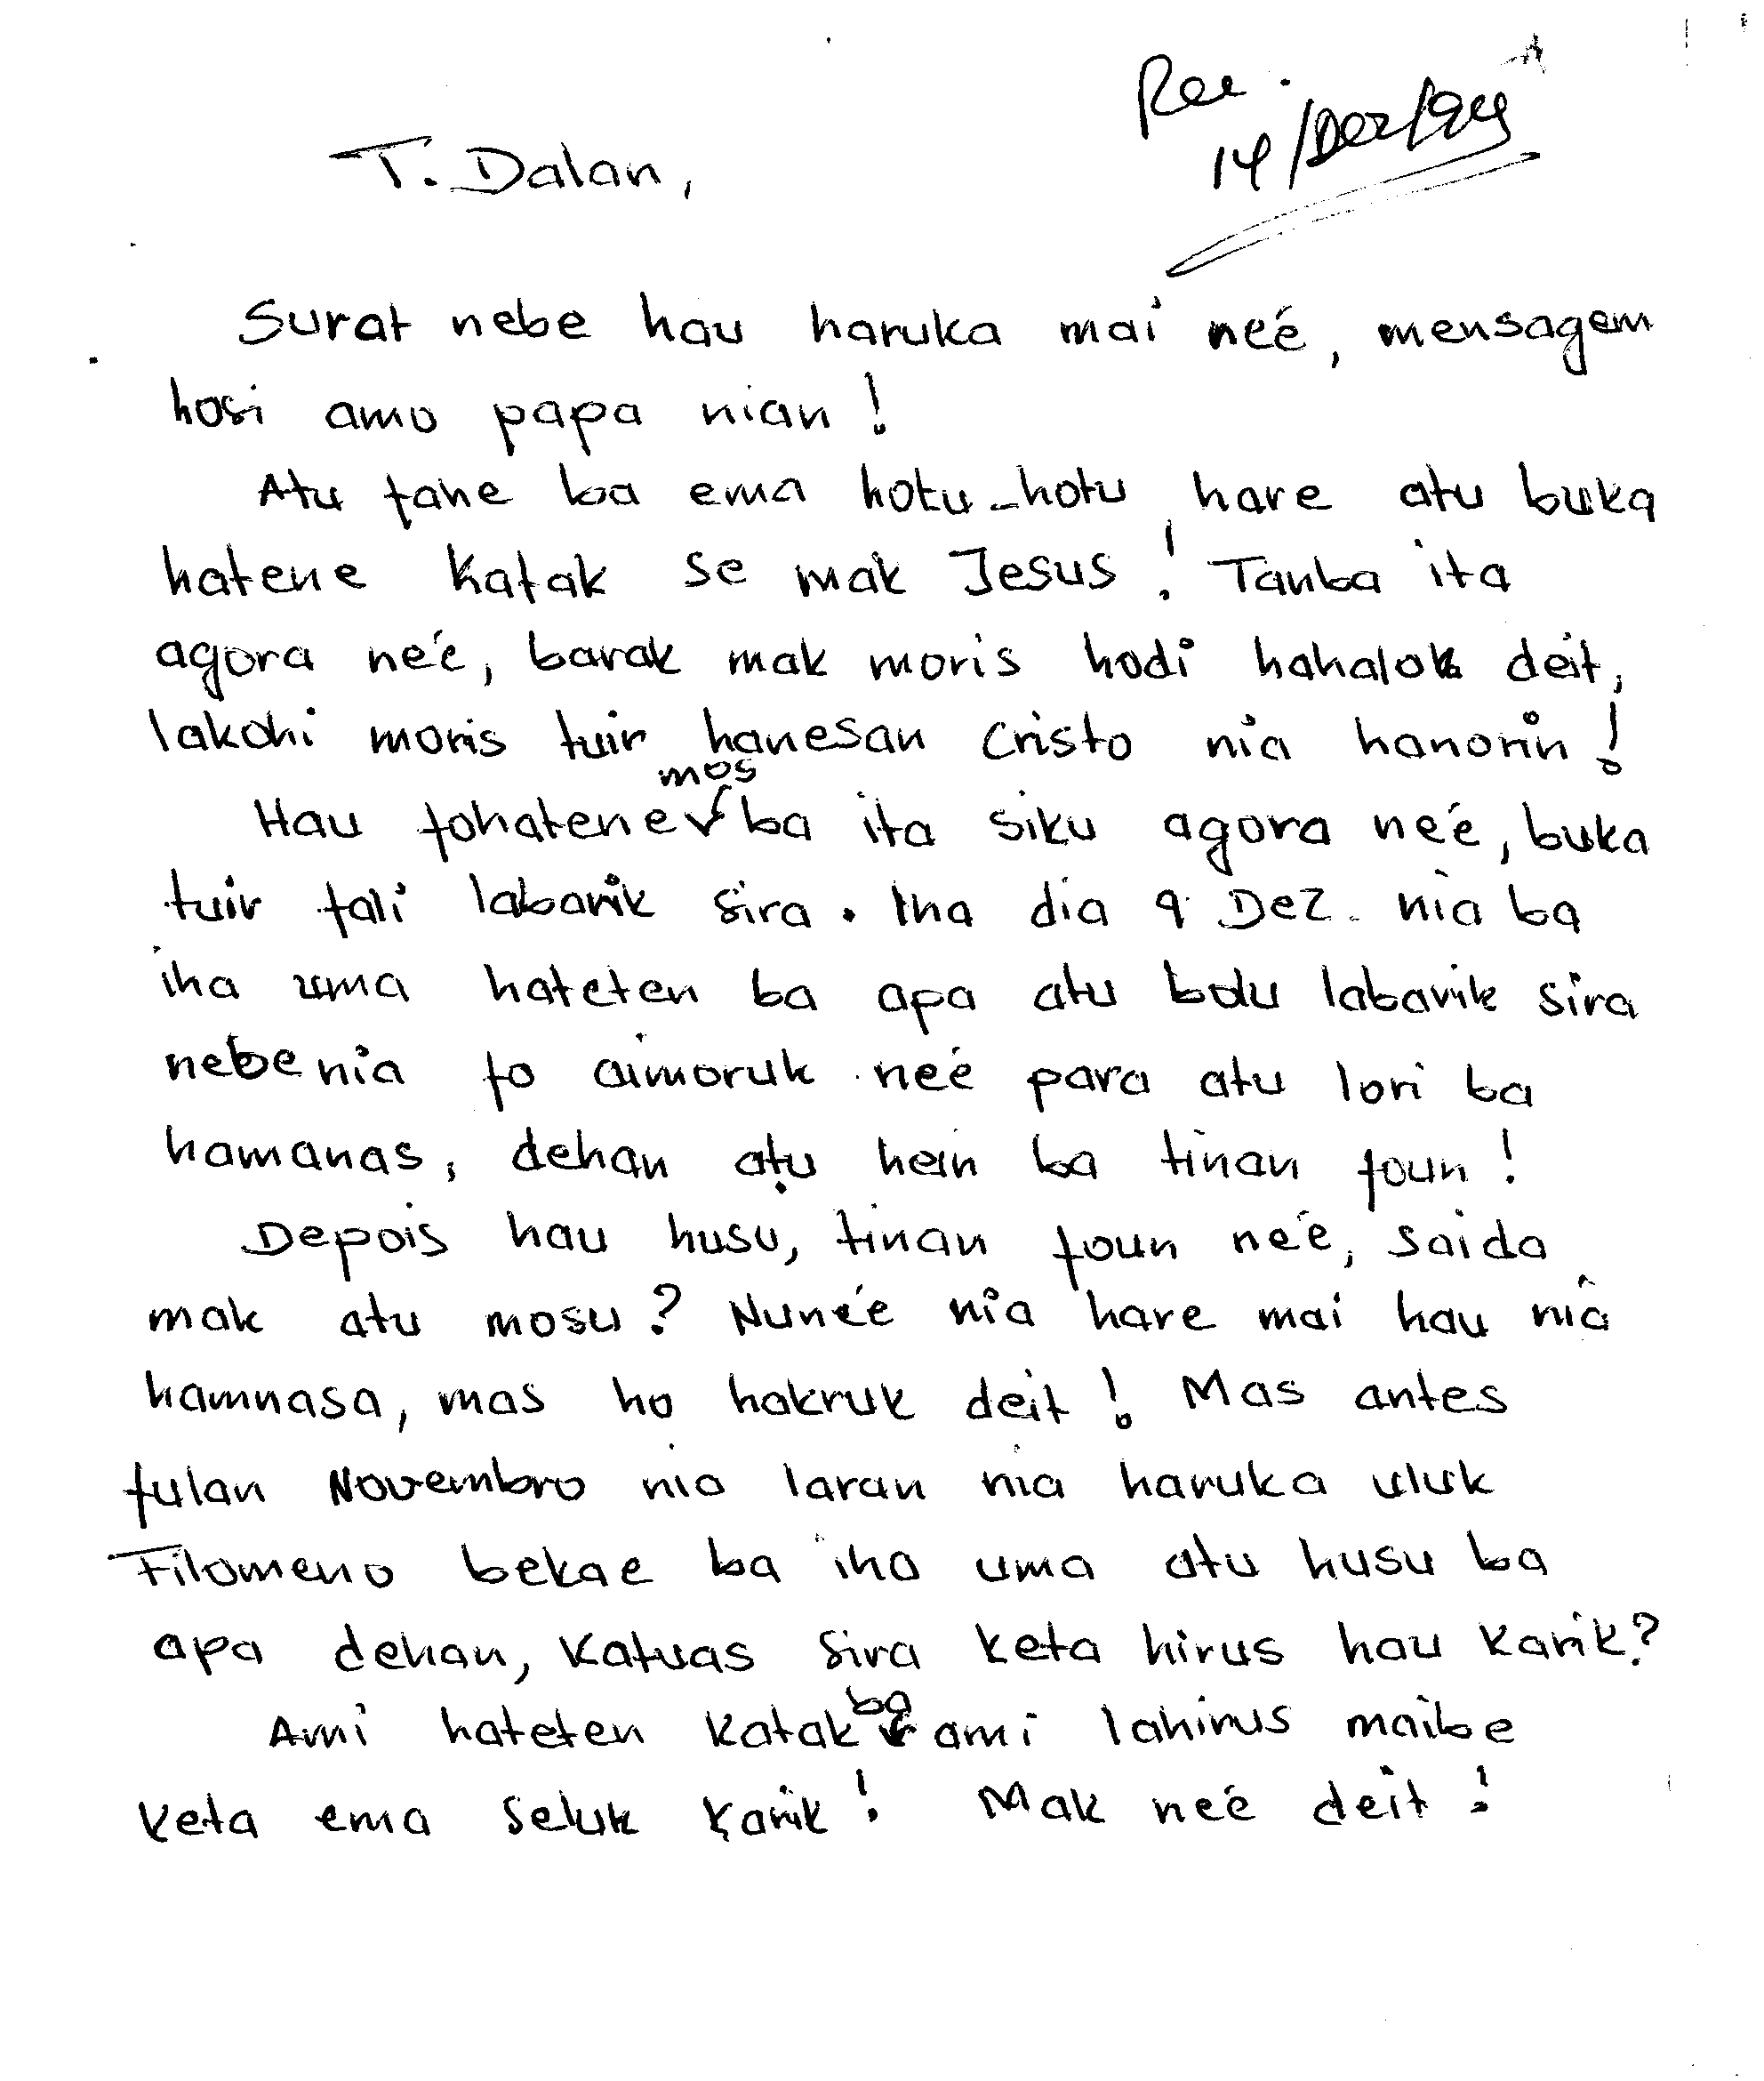 Rec.
14/Dez/94
T. Dalan,
Surat nebe hau haruka mai neé, mensagem
hosi amo papa nian!
Atu fahe ba ema hotu-hotu, hare atu buka
hatene katak se mak Jesus! Tanba ita
agora neé, barak mak moris hodi hahalok deit,
lakohi moris tuir hanesan Cristo nia hanorin!
Hau fohatene mos ba ita siku agora neé, buka
tuir fali labarik sira. Iha dia 9 Dez. nia ba
iha uma hateten ba apa atu bolu labarik sira
nebe nia fo aimoruk neé para atu lori ba
hamanas, dehan atu hein ba tinan foun!
Depois hau husu, tinan foun neé, saida
mak atu mosu? Nuneé nia hare mai hau nia
hamnasa, mas ho hakruk deit! Mas antes
fulan Novembro nia laran nia haruka uluk
Filomeno bekae ba iha uma atu husu ba
apa dehan, katuas sira keta hirus hau karik?
Ami hateten katak ba ami lahirus maibe
keta ema seluk karik! Mak neé deit!